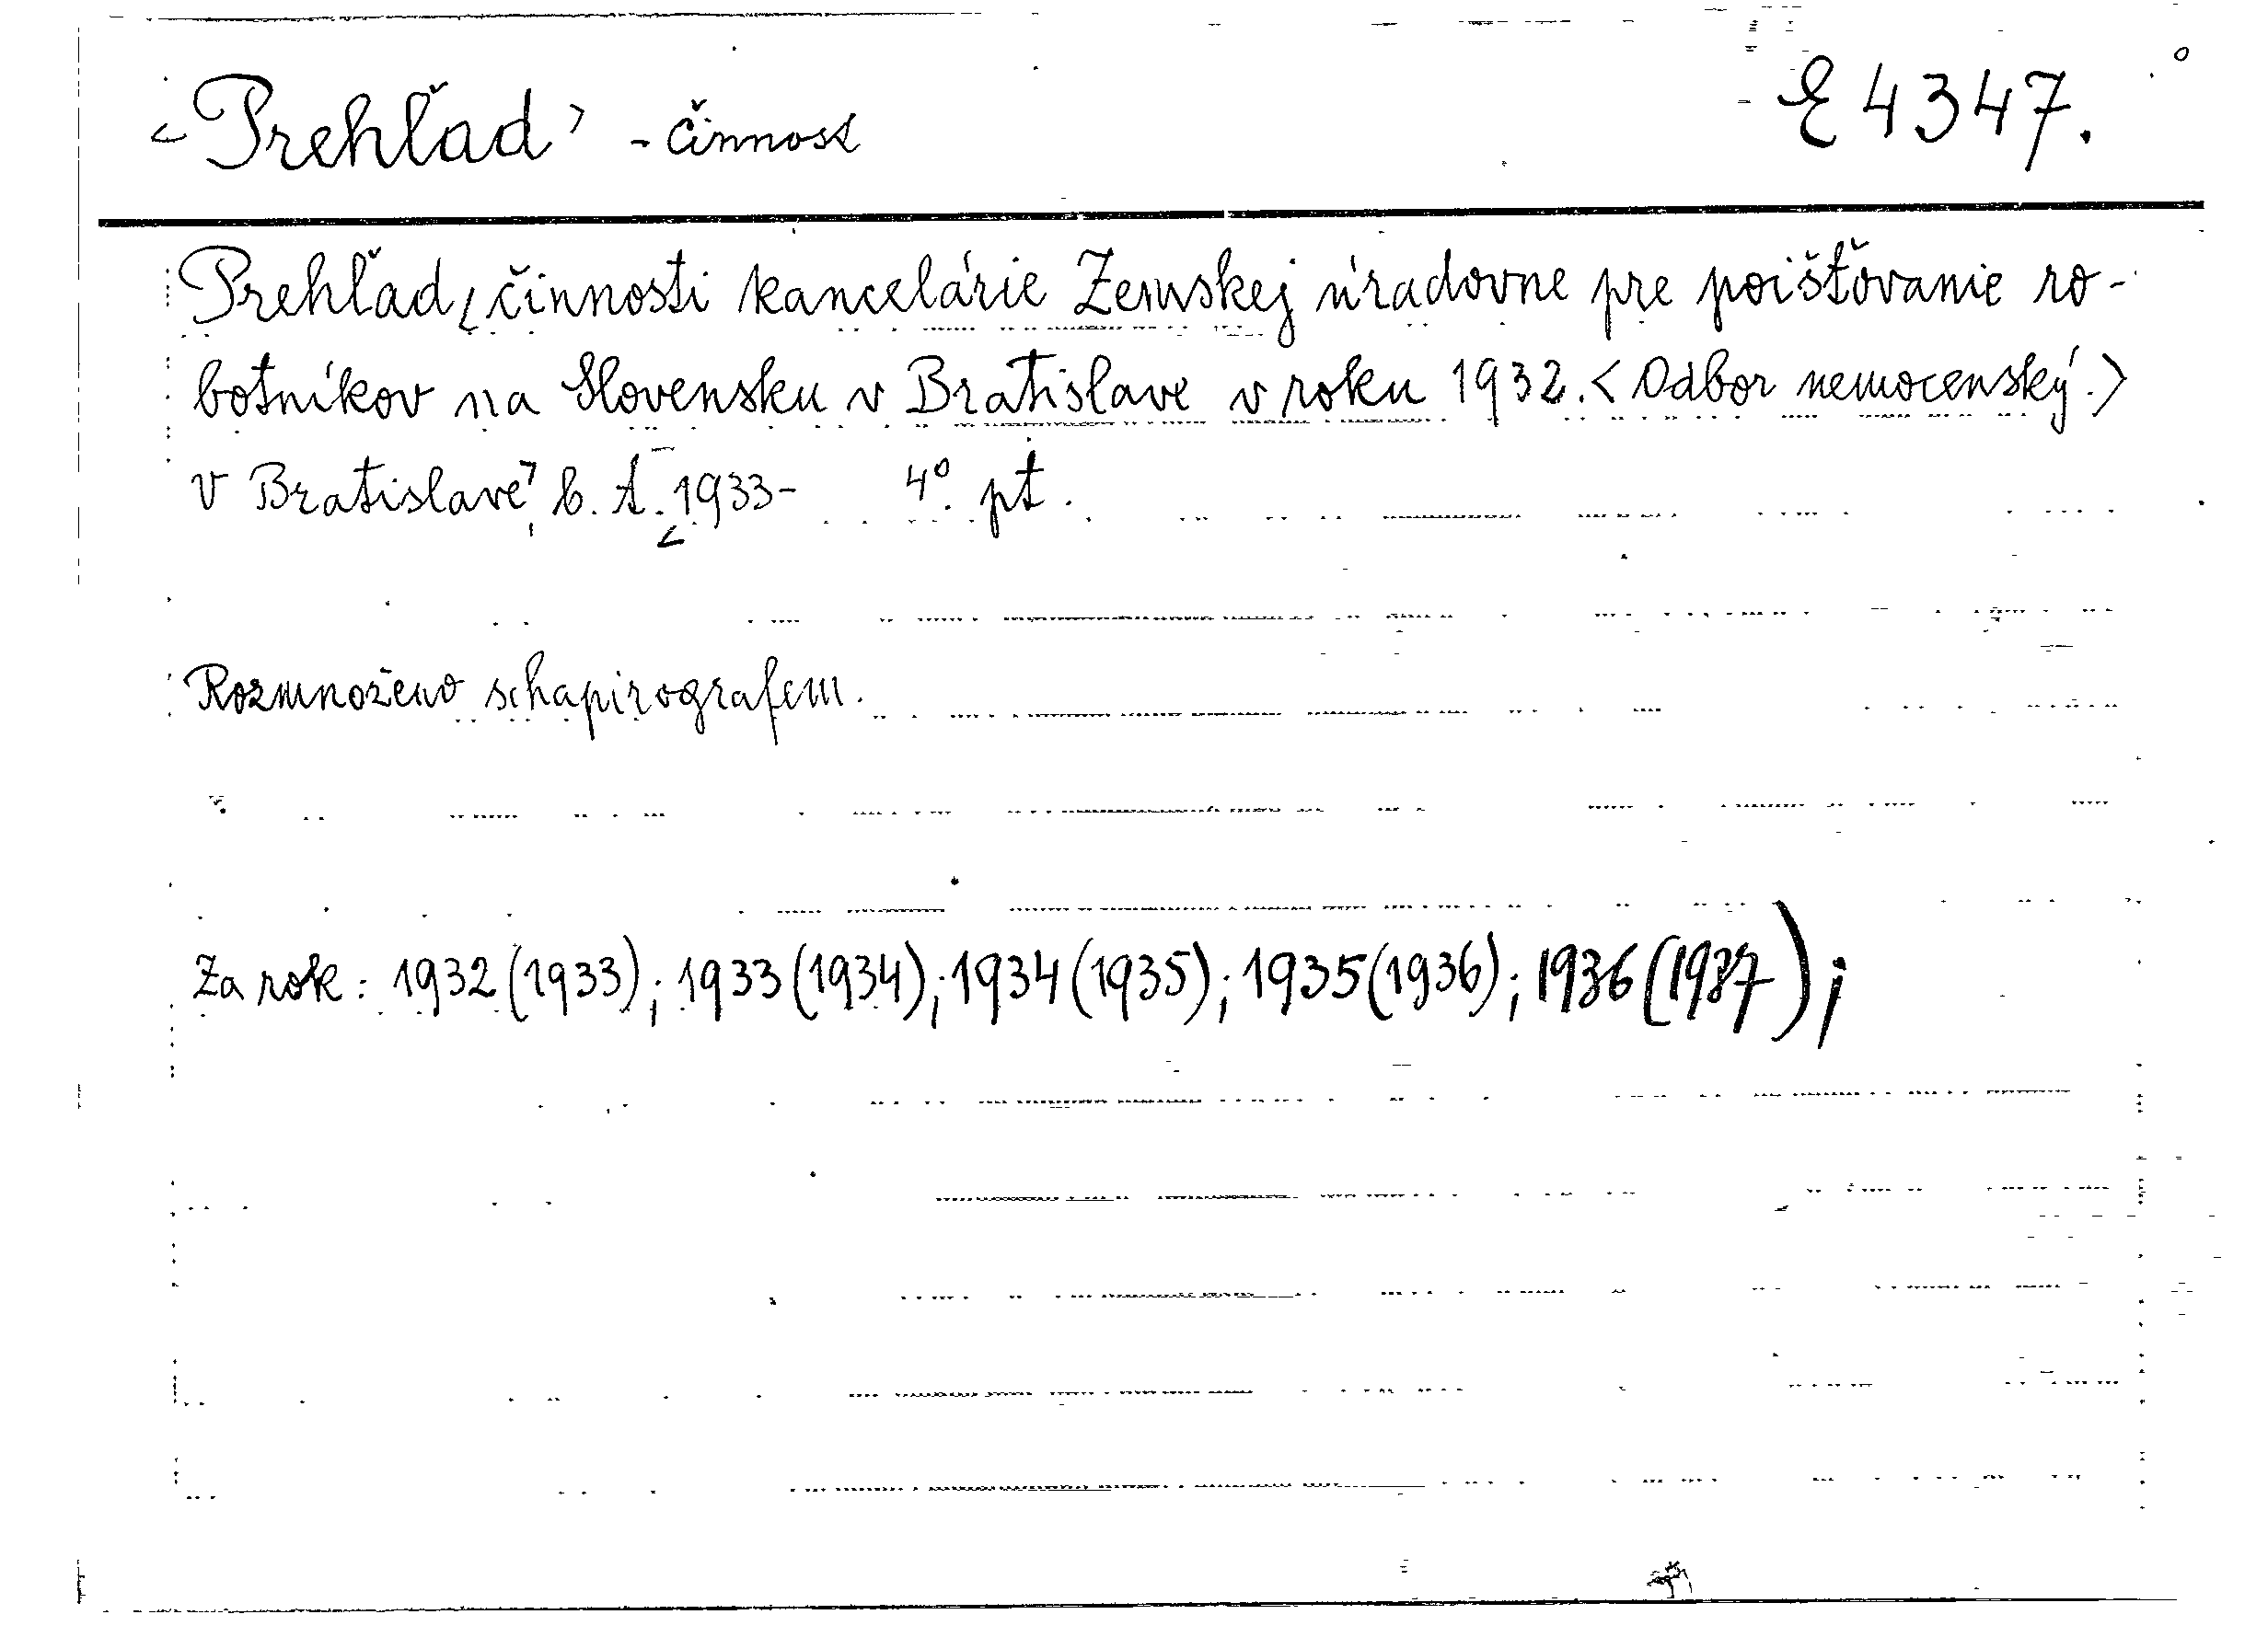 <Prehľad> - činnosť E 4347.
Prehľad činnosti kancelárie Zemskej úradovne pre poišťovanie ro-
botníkov na Slovensku v Bratislave v roku 1932. <Odbor nemocenský.>
V Bratislave, b. t. 1933- 4° pt.
Rozmnoženo schapirografem.
Za rok: 1932 (1933); 1933 (1934); 1934 (1935); 1935 (1936); 1936 (1937);